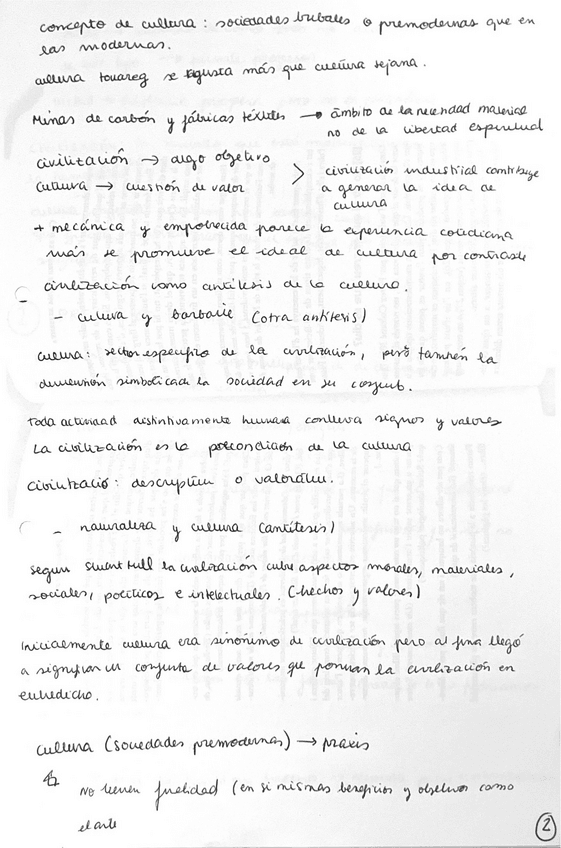 concepto de cultura : sociedades tribales o premodernas que en
las modernas.
cultura touareg se ajusta más que cultura tejana.
Minas de carbón y fábricas textiles → ámbito de la necesidad material
no de la libertad espiritual
civilización → algo objetivo
cultura → cuestión de valor
> civilización industrial contribuye
a generar la idea de
cultura
+ mecánica y empobrecida parece la experiencia cotidiana
más se promueve el ideal de cultura por contraste
civilización como antítesis de la cultura.
- cultura y barbarie (otra antítesis)
cultura: sector específico de la civilización, pero también la
dimensión simbólica de la sociedad en su conjunto.
Toda actividad distintivamente humana conlleva signos y valores
La civilización es la precondición de la cultura
Civilització: descriptiu o valoratiu.
- naturaleza y cultura (antítesis)
segun Stuart Mill la civilización cubre aspectos morales, materiales,
sociales, políticos e intelectuales. (hechos y valores)
Inicialmente cultura era sinónimo de civilización pero al final llegó
a significar un conjunto de valores que ponían la civilización en
entredicho.
cultura (sociedades premodernas) → praxis
No tienen finalidad (en si mismas beneficios y objetivos como
el arte
2